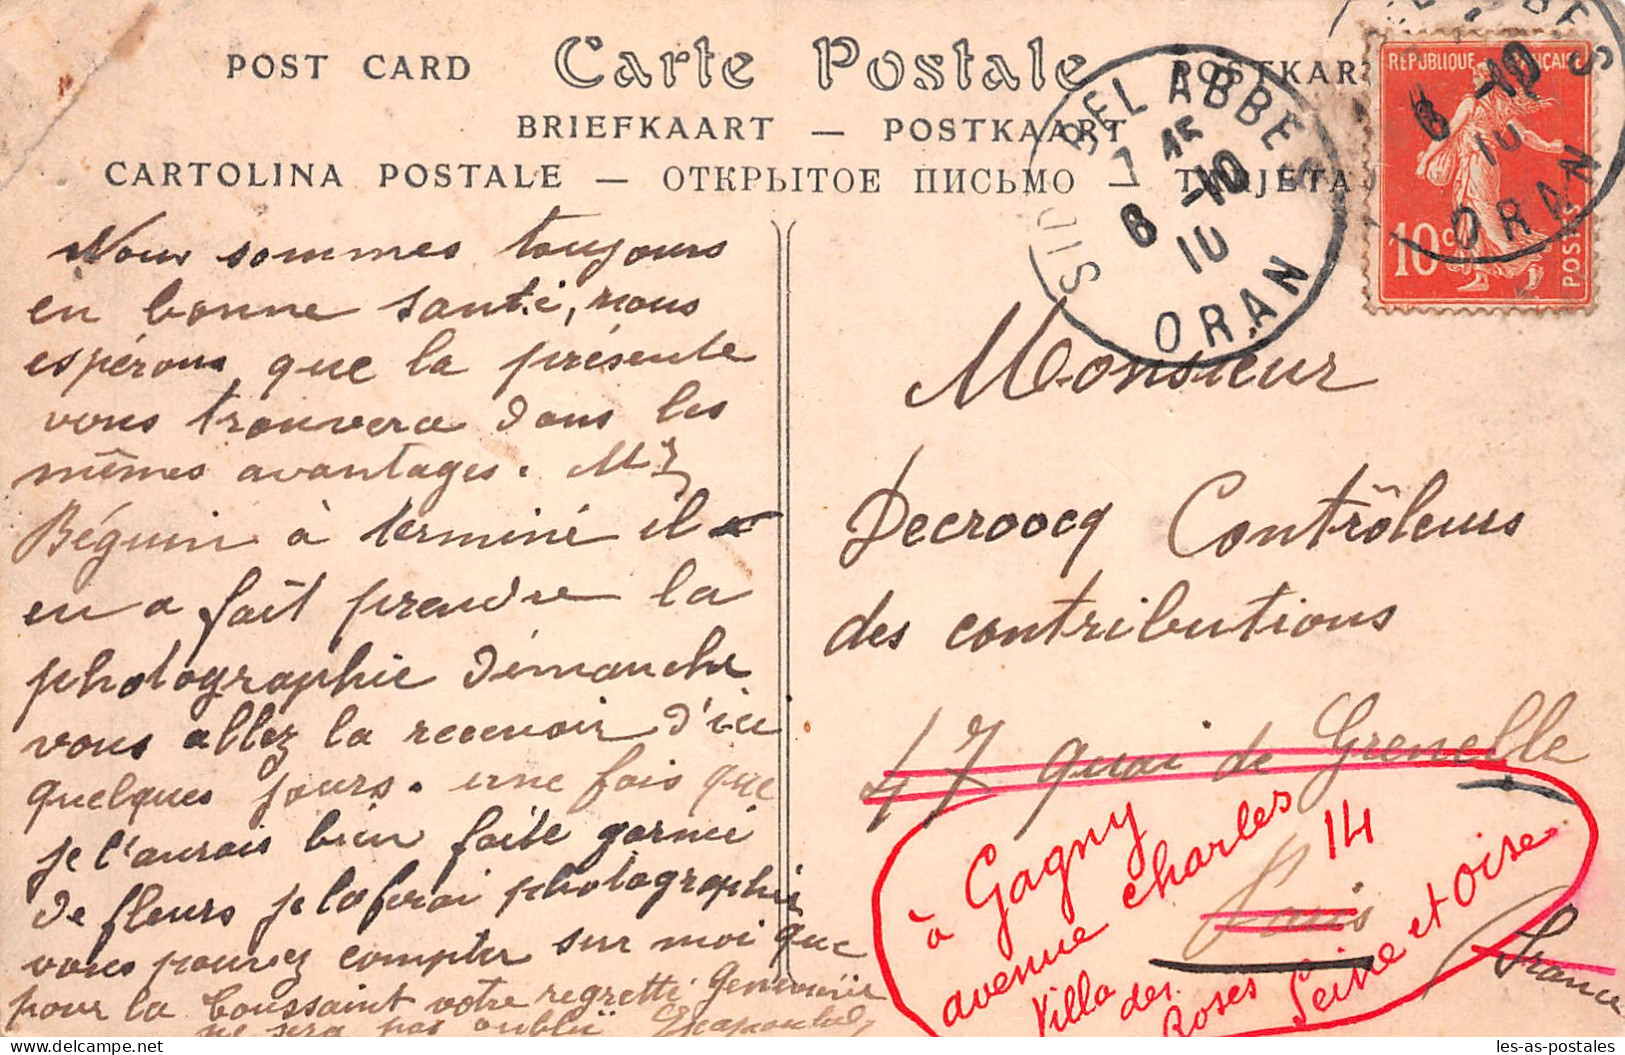 POST CARD Carte Postale POSTKAR
BRIEFKAART — POSTKAART
CARTOLINA POSTALE — ОТКРЫТОЕ ПИСЬМО — TARJETA
SIDI BEL ABBES
7 15
8 -10
10
ORAN
BBES
8 -10
10
ORAN
REPUBLIQUE FRANÇAISE
10c
POSTES
Nous sommes toujours
en bonne santé, nous
espérons que la présente
vous trouvera dans les
mêmes avantages. Mr
Béguin à terminé il
en a fait prendre la
photographie Dimanche
vous allez la recevoir d'ici
quelques jours. une fois que
je l'aurais bien faite garnie
de fleurs je la ferai photographié
vous pouvez compter sur moi que
pour la Toussaint votre regretté
ne sera pas oublié
Monsieur
Decroocq Contrôleurs
des contributions
47 quai de Grenelle
Paris
France
à Gagny
avenue Charles 14
Villa des Roses Seine et Oise
les-as-postales